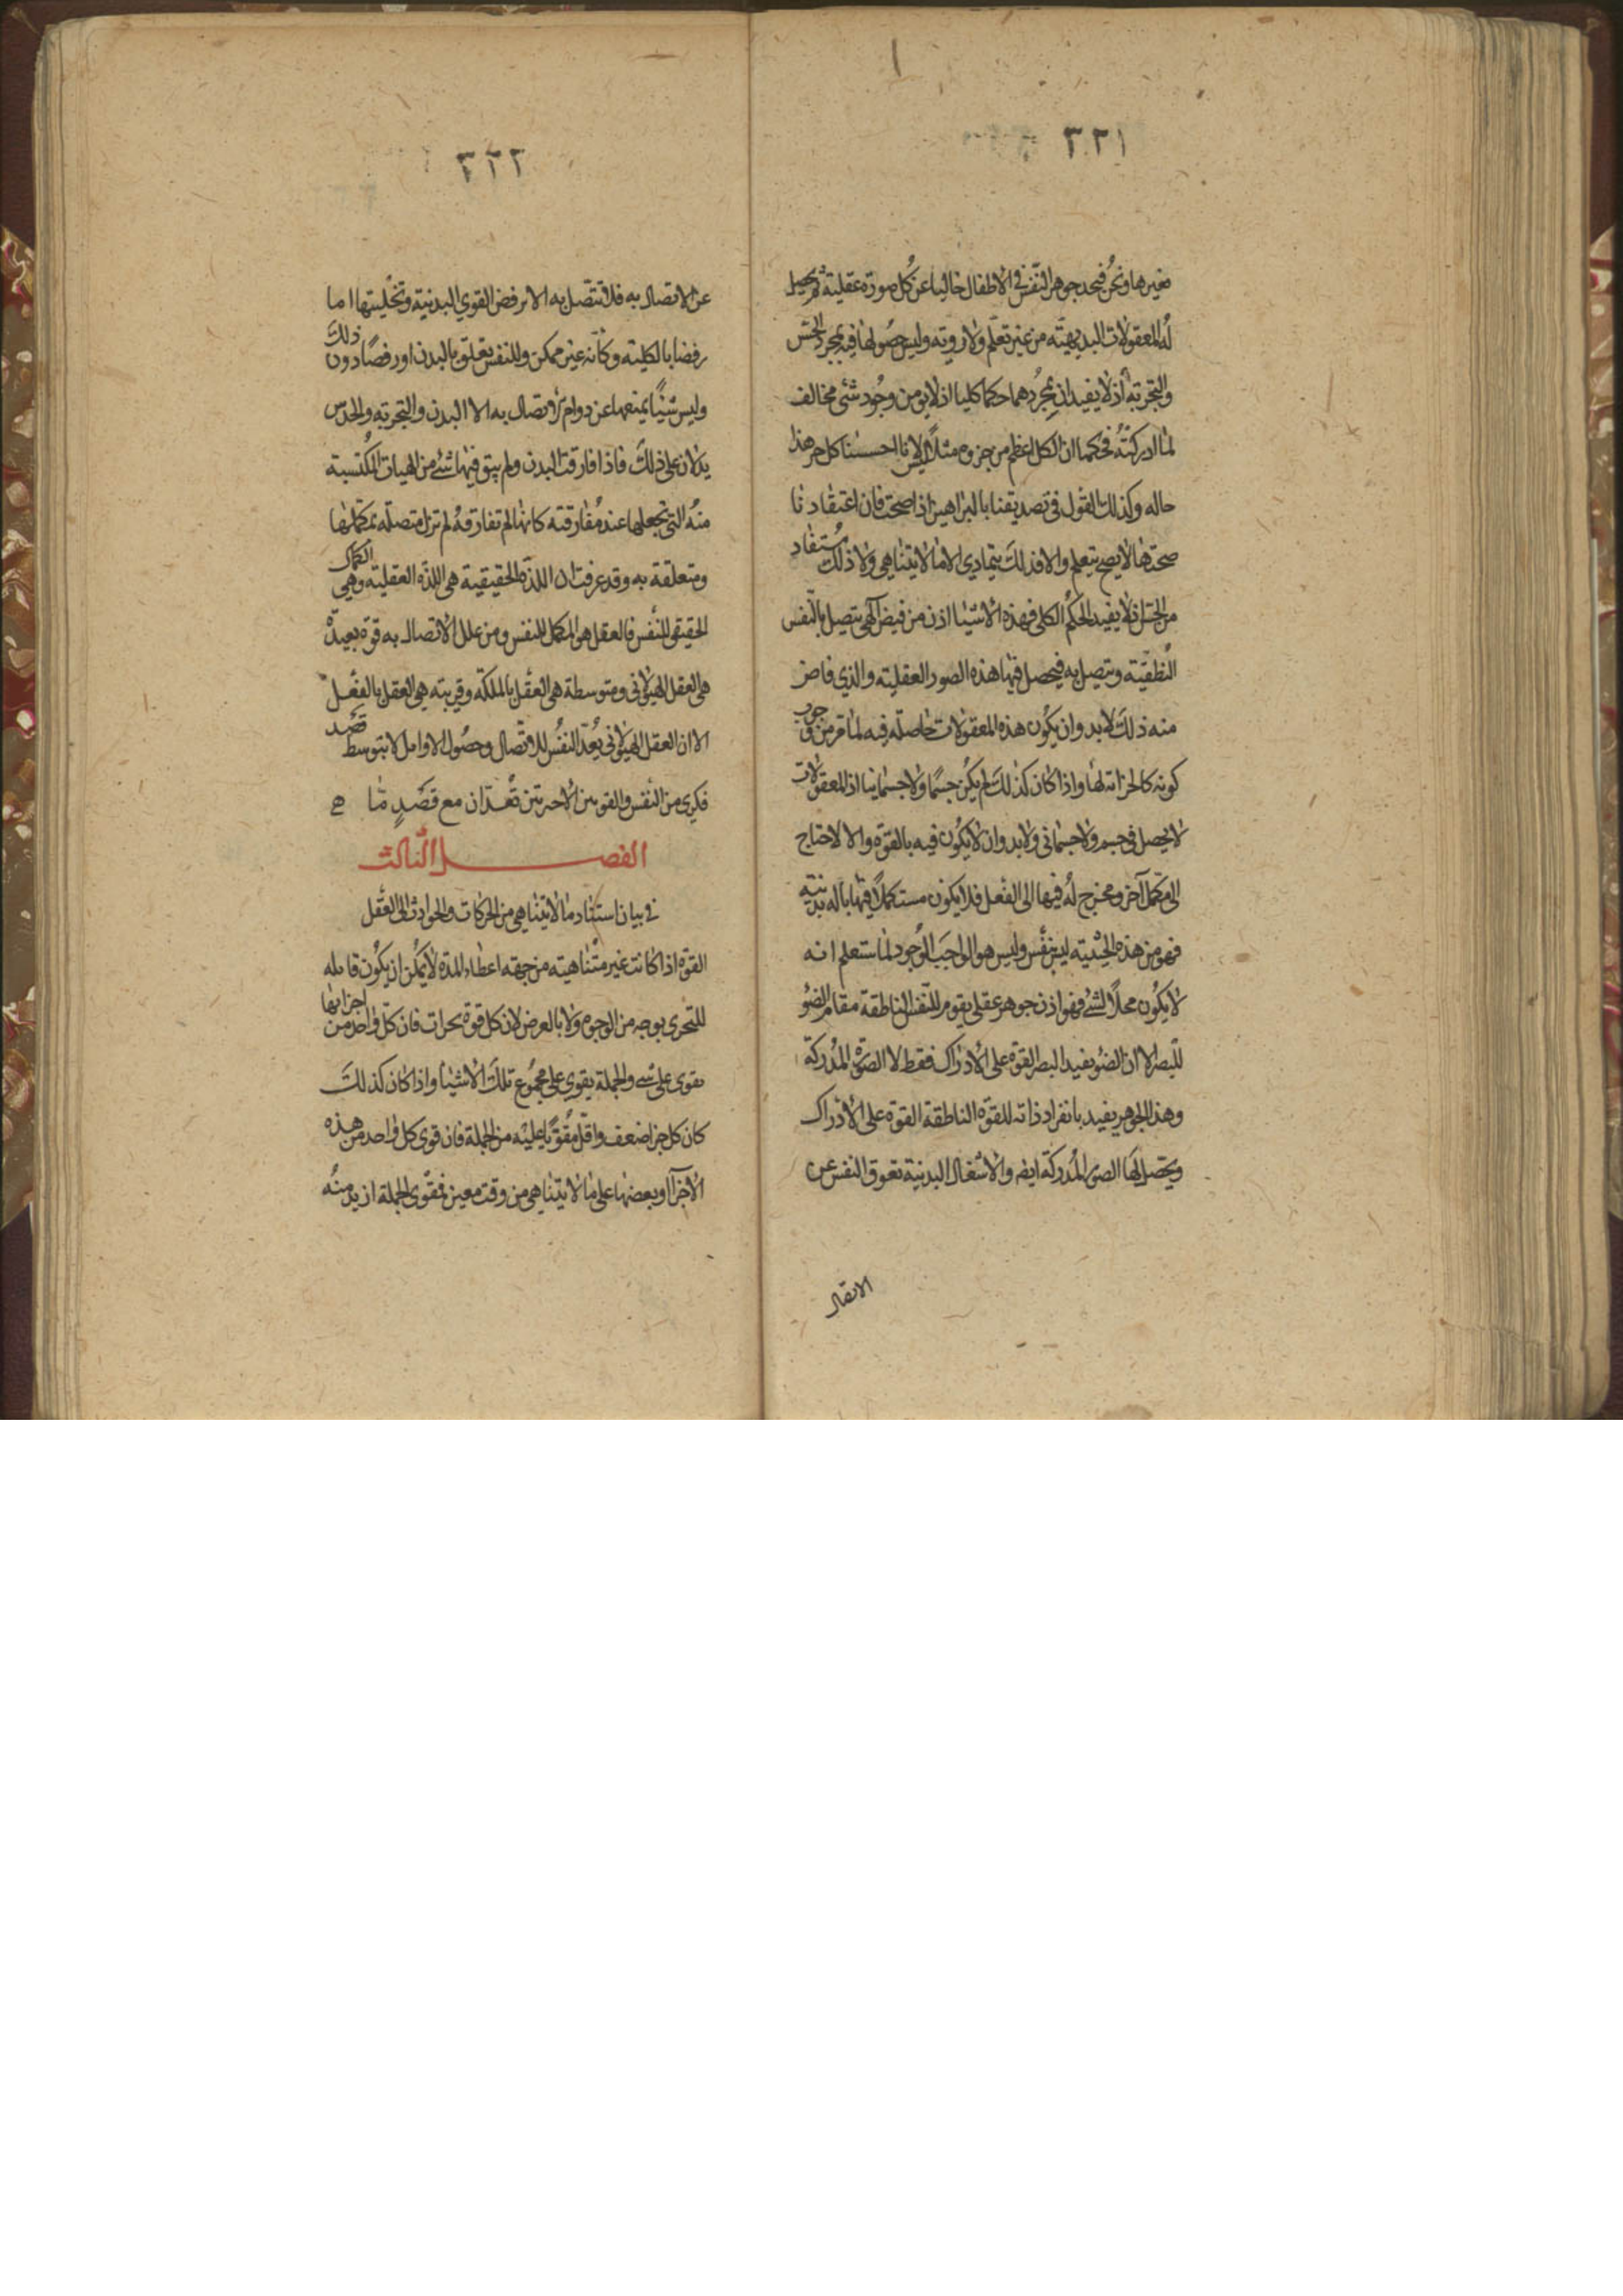 ٣٢١
مغيرها ونحن فنجد جوهر النفس في الأطفال خاليا عن كل صورة عقلية ثم يحصل
له المعقولات البديهية من غير تعلم ولا روية وليس حصولها فيه بمجرد الحس
والتجربة اذ لا يفيدان بمجردهما حكما كليا اذ لا يؤمن وجود شئ مخالف
لما ادركته فحكمنا ان الكل اعظم من جزوه مثلا ليس لانا احسسنا كل جزء هذا
حاله وكذلك القول في تصديقنا بالبراهين اذا صحت فان اعتقادنا
صحتها لا يصح بتعلم والا فذلك يتمادى الا ما لا يتناهى ولا ذلك مستفاد
من الحس اذ لا يفيد الحكم الكلى فهذه الأشيا اذن من فيض آلهى يتصل بالنفس
النطقية وتتصل به فيحصل فيها هذه الصور العقلية والذى فاض
منه ذلك لا بد وان يكون هذه المعقولات حاصلة فيه لما مر من وجوب
كونه كالخزانة لها واذا كان كذلك لم يكن جسما ولا جسمانيا اذ المعقولات
لا يحصل في جسم ولا جسماني ولا بد وان لا يكون فيه بالقوة والا لاحتاج
الى مكمل آخر ومخرج له فيها الى الفعل فلا يكون مستكملا فيها بآلة بدنية
فهو من هذه الحيثية ليس بنفس وليس هو الواجب الوجود لما ستعلم انه
لا يكون محلا لشئ فهو اذن جوهر عقلي يقوم للنفس الناطقة مقام الضو
للبصر الا ان الضو يفيد البصر القوة على الأدراك فقط لا الصورة المدركة
وهذا الجوهر يفيد بانفراد ذاته للقوة الناطقة القوة على الأدراك
ويحصل لها الصور المدركة ايضا والاشغال البدنية تعوق النفس عن
الاتصال
٣٢٢
عن الاتصال به فلا تتصل به الا برفض القوى البدنية وتخليتها اما
رفضا بالكلية وكأنه غير ممكن وللنفس تعلق بالبدن او رفضا دون ذلك
وليس شيئا يمنعها عن دوام الاتصال به الا البدن والتجربة والحدس
يدلان على ذلك فاذا فارقت البدن ولم يبق فيها شئ من الهيات المكتسبة
منه التي تجعلها عند مفارقته كانها لم تفارقه لم تزل متصلة بمكملها
ومتعلقة به وقد عرفت ان اللذة الحقيقية هى اللذة العقلية وهى الكمال
الحقيقى للنفس فالعقل هو المكمل للنفس ومن علل الاتصال به قوة بعيدة
هى العقل الهيولانى ومتوسطة هى العقل بالملكة وقريبته هى العقل بالفعل
الا ان العقل الهيولانى يعد النفس للاتصال وحصول الاوايل لا بتوسط قصد
فكرى من النفس والقوتين الأخريتين تعدان مع قصد ما
الفصل الثالث
في بيان استناد ما لا يتناهى من الحركات والحوادث الى العقل
القوة اذا كانت غير متناهية من جهة اعطاء المدة لا يمكن ان يكون قابله
للتجزى بوجه من الوجوه ولا بالعرض لان كل قوة تجزأت فان كل واحد من اجزائها
يقوى على شئ والجملة يقوى على مجموع تلك الأشيا واذا كان كذلك
كان كل جزء اضعف واقل مقويا عليه من الجملة فان قوى كل واحد من هذه
الأجزآ او بعضها على ما لا يتناهى من وقت معين فقوى الجملة ازيد منه